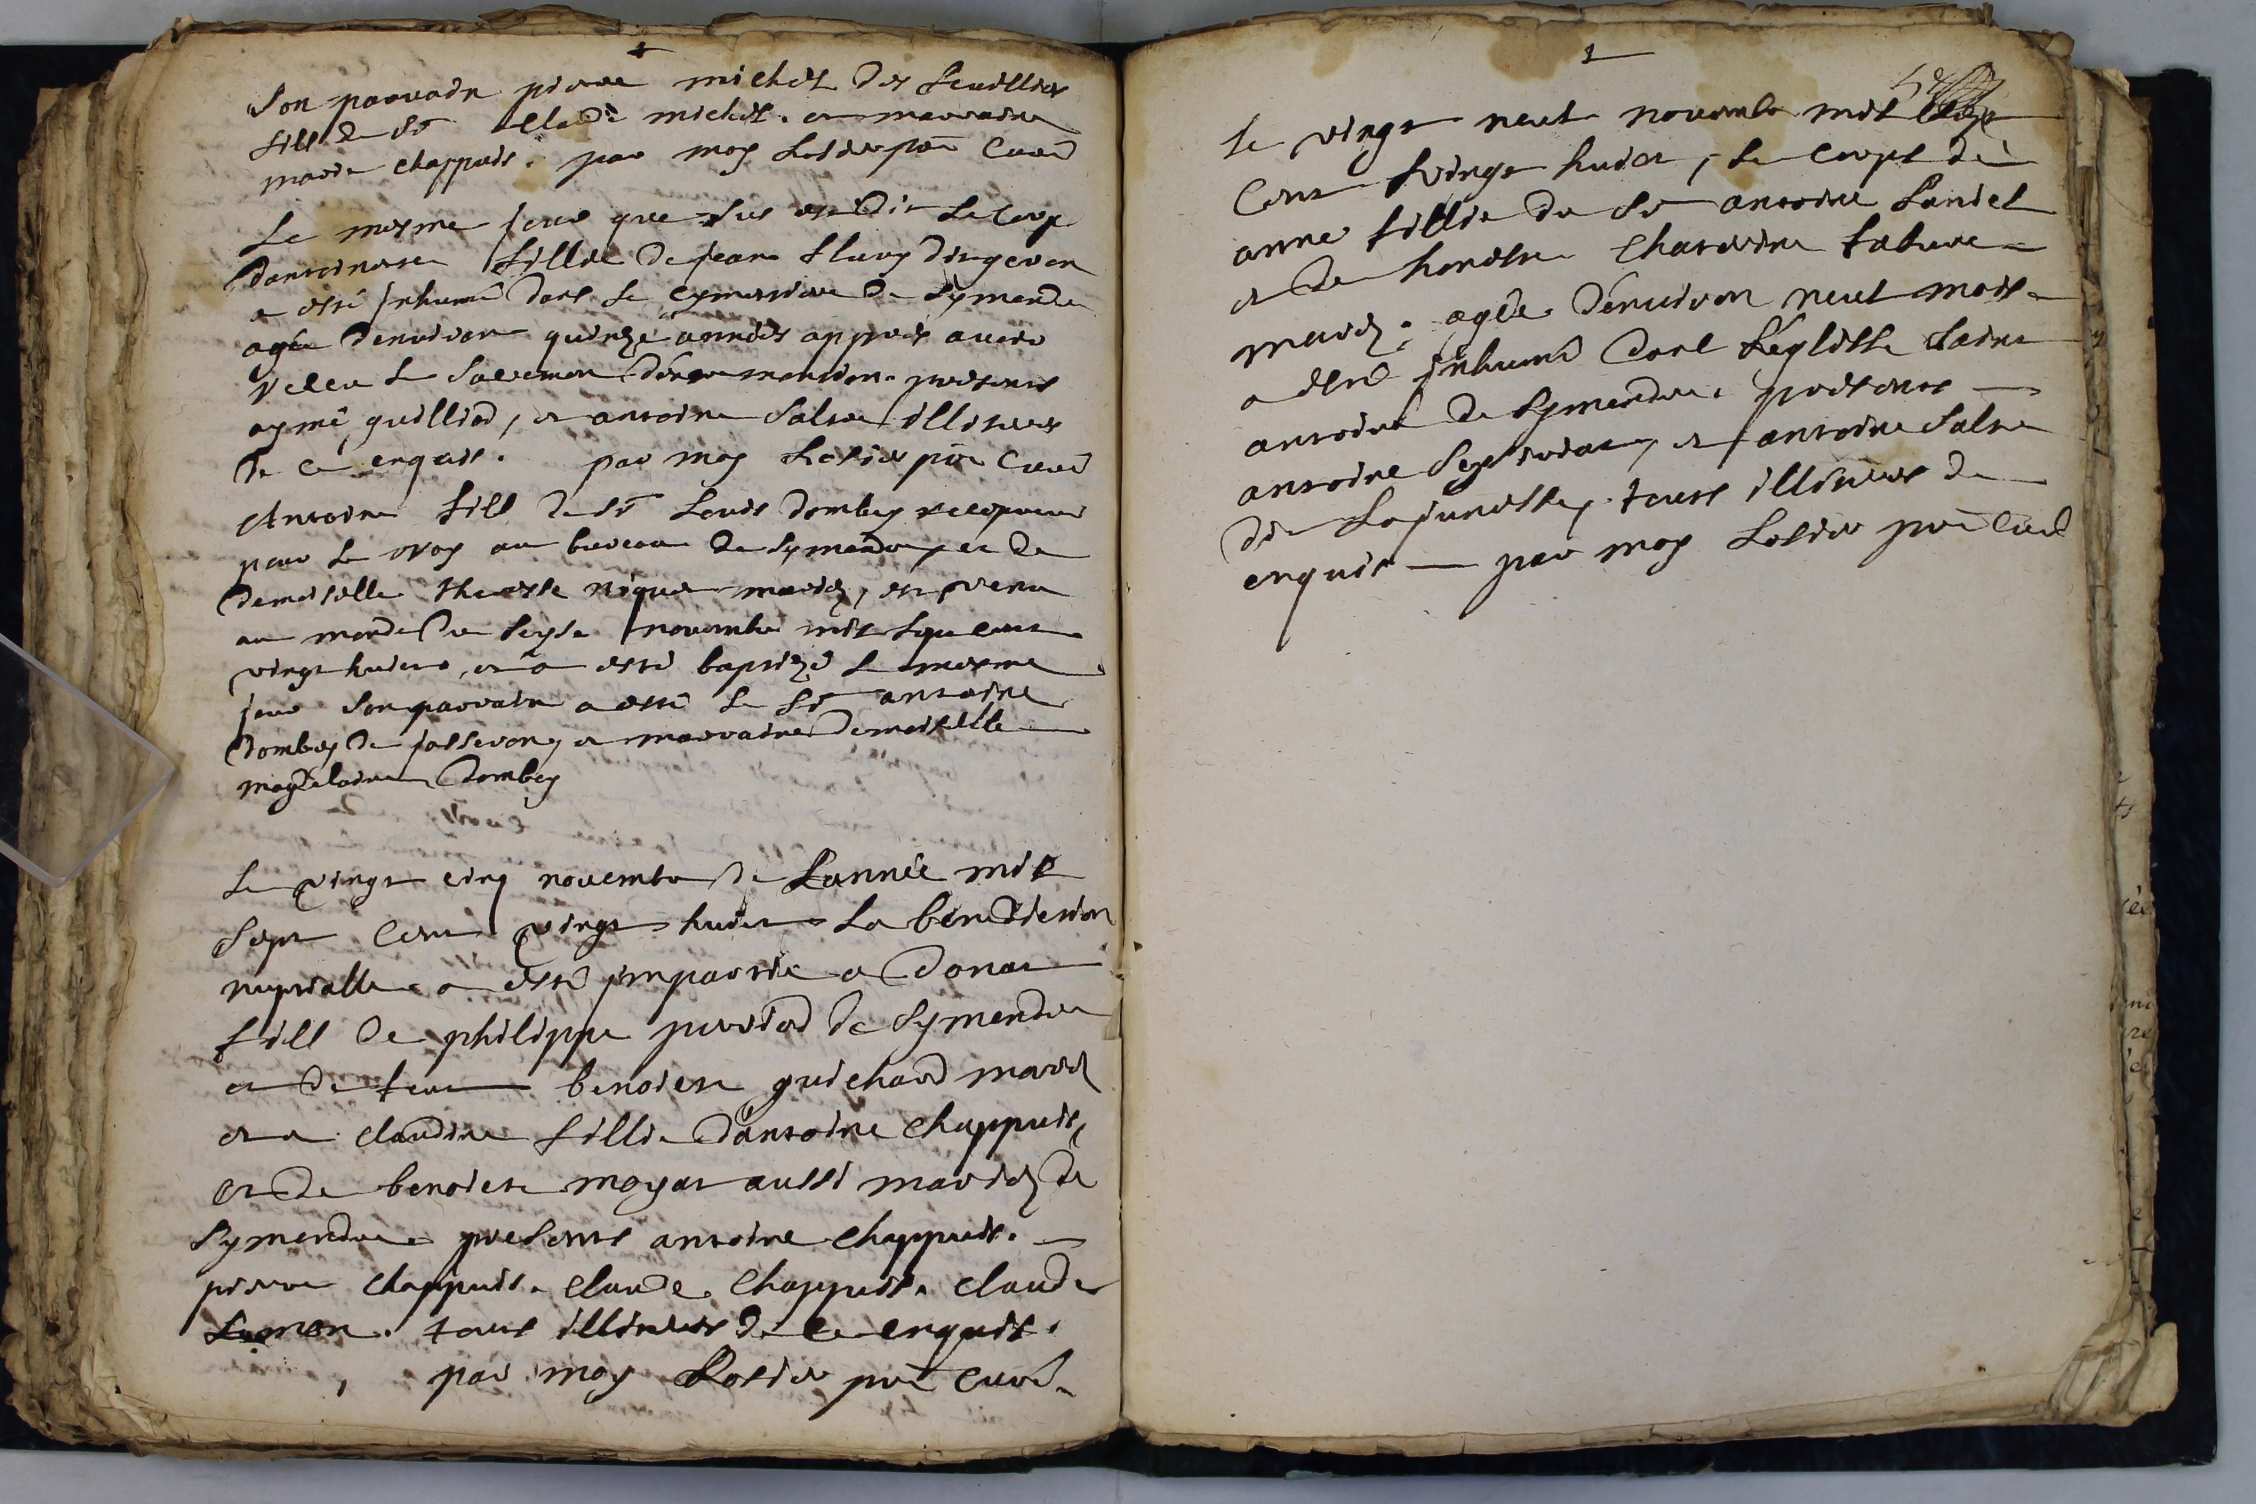 Son parrain pierre michel des
fill de Sr Claude michel. et marraine
marie chappuis. par moy Losier ptre Curé
Le mesme jour que sus est dit Le Corp
dantoinette fillie de jean
a esté jnhumé dans Le Cymetiere De Symandre
agée denviron quinze années apprés avoir
receu Le Sacremen dextre monction. presents
aymé guilliod, et antoine Salse illiteres
de ce enquis. par moy Losier ptre Curé
Antoine fill de Sr Louis dombey recepveur
pour Le roy au bureau de Symandre, et de
demoiselle therese niquet mariez, est venu
au monde le seyse novembre mil sept cent
vingt huict, et a esté baptizé Le mesme
jour Son parrain a esté Le Sr antoine
dombey de jasseron, et marraine demoiselle
magdelaine dombey
Le vingt cinq novembre de Lannée mil
Sept Cent vingt huict La benediction
nuptialle a esté jmpartie a donat
fill de philippe perrod de Symandre
et de feue benoiste guichard mariez
et a claudine fillie dantoine Chappuis,
et de benoiste moyat aussi mariez de
Symandre presents antoine Chappuis.
pierre Chappuis. Claude Chappuis. Claude
tous illiteres de ce enquis.
par moy Losier ptre Curé
Le vingt neuf novembre mil Sept
Cent Vingt huict, Le Corps de
anne fillie de Sr antoine
et de honeste Chaterine fabure
mariez. agée denviron neuf mois
a esté jnhumé dans Léglisse Saint
antoine de Symandre. presents
antoine et antoine Salse
dit Lajunesse, tous illiteres de
enquis par moy Losier ptre Curé